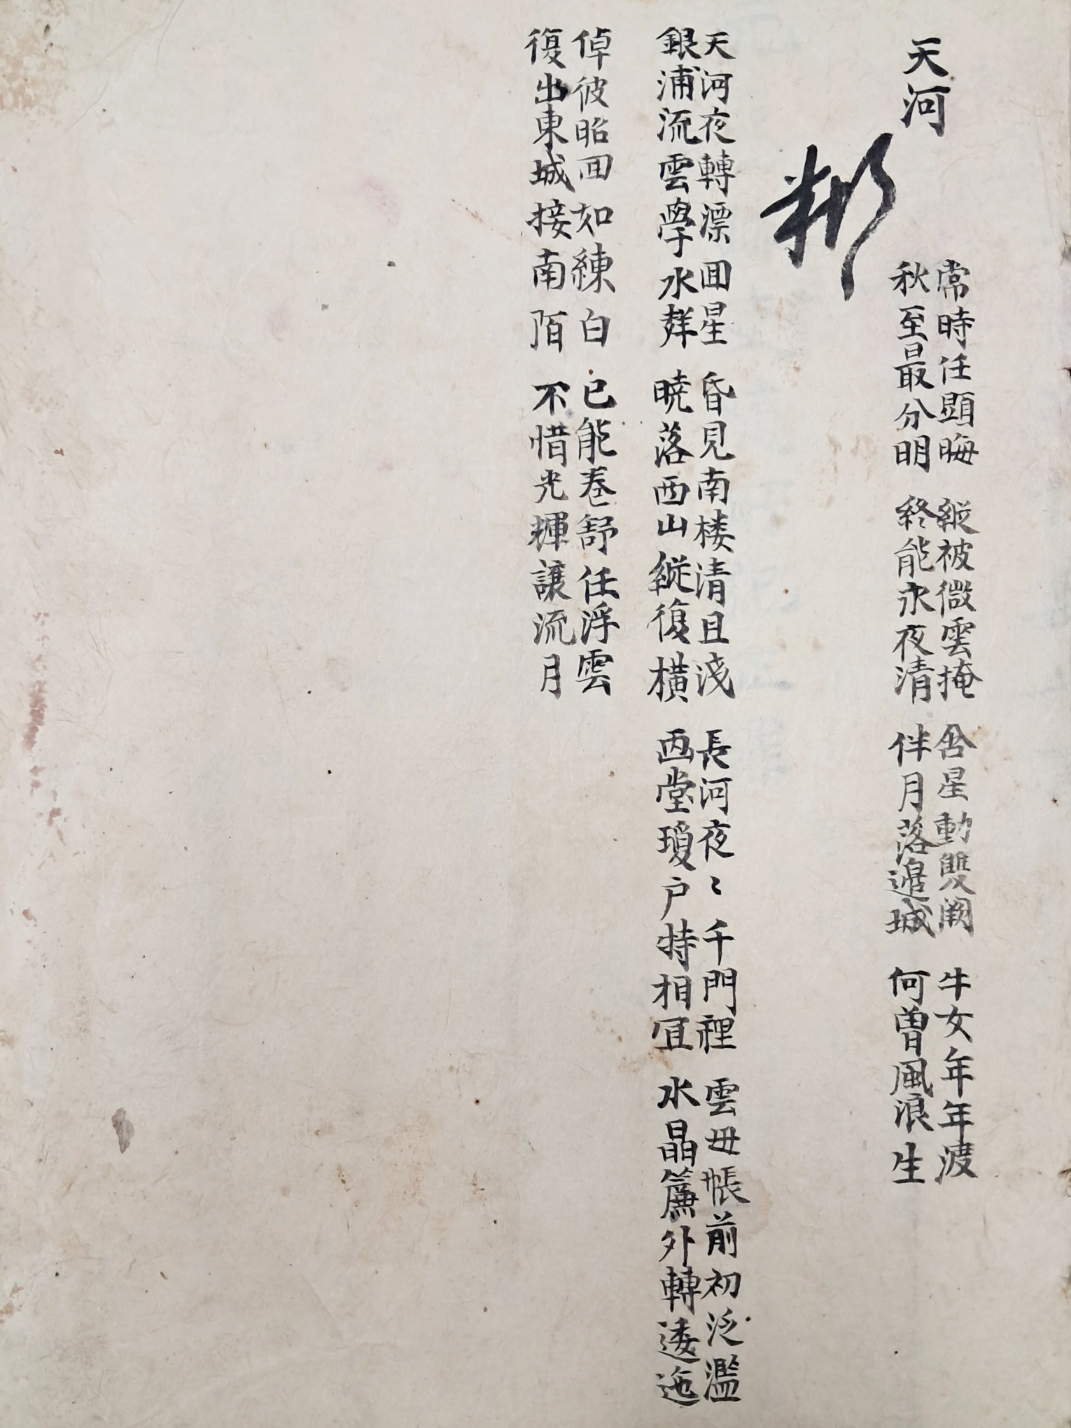 天河
常時任顕晦
秋至最分明
縦被微雲掩
終能永夜清
含星動雙闕
伴月落邉城
牛女年年渡
何曽風浪生
天河夜轉漂囬星
銀浦流雲學水聲
昏見南楼清且淺
暁落西山縦復横
長河夜〻千門裡
西堂瓊户特相冝
雲母帳前初泛濫
水晶簾外轉逶迤
倬彼昭回如練白
復出東城接南陌
已能巻舒任浮雲
不惜光輝譲流月